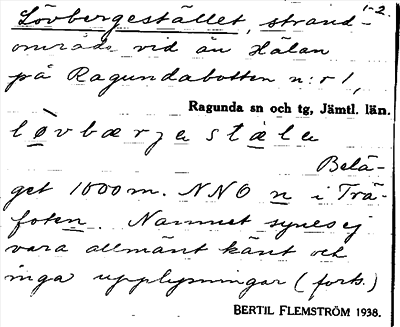 1-2.
Lövbergestället, strand-
område vid ån Hälan
på Ragundabotten n:r 1,
Ragunda sn och tg, Jämtl. län.
løvbærjestäle
Belä-
get 1000 m. NNO n i Trä-
foten. Namnet synes ej
vara allmänt känt och
inga upplysningar (forts.)
BERTIL FLEMSTRÖM 1938.